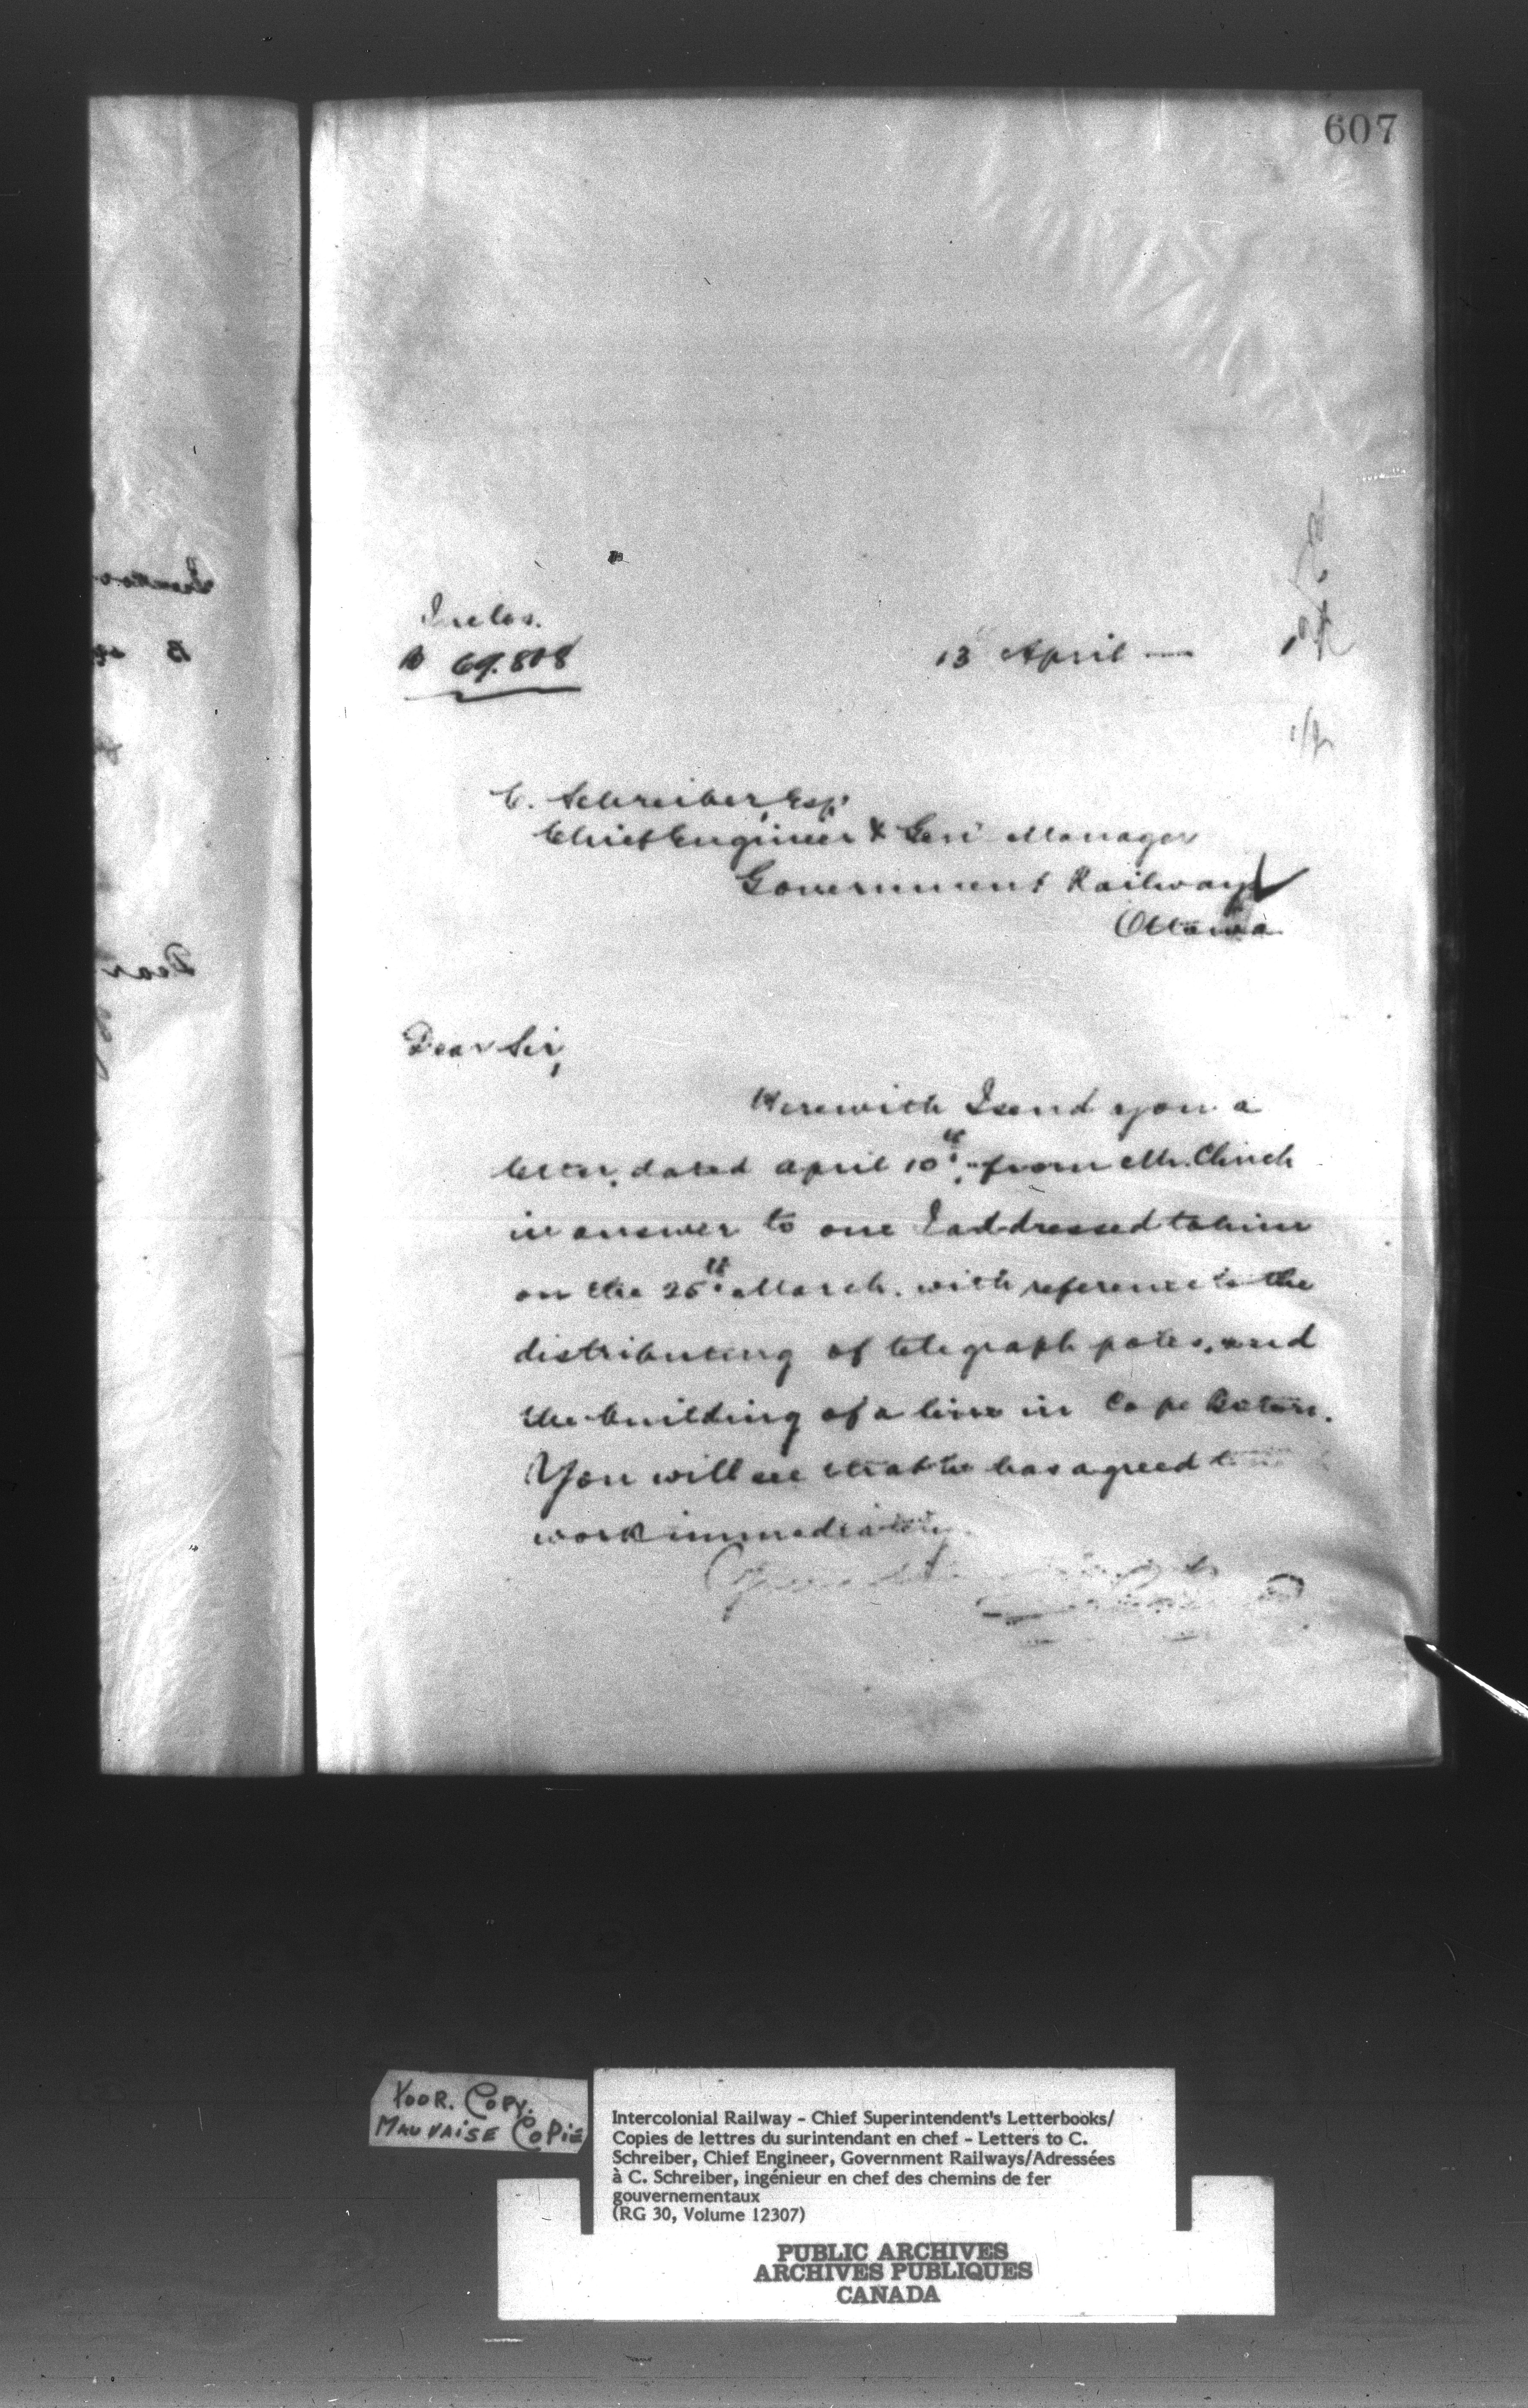 607
Inclos.
B 69.808
13 April —
C. Schreiber, Esq.
Chief Engineer & Genl Manager
Government Railways
Ottawa
Dear Sir,
Herewith I send you a
letter, dated april 10th, from Mr. Clinch
in answer to one I addressed to him
on the 25th March, with reference to the
distributing of telegraph poles, and
the building of a line in Cape Breton.
You will see that he has agreed to
work immediately.
POOR. COPY.
MAUVAISE COPIE
Intercolonial Railway - Chief Superintendent's Letterbooks/
Copies de lettres du surintendant en chef - Letters to C.
Schreiber, Chief Engineer, Government Railways/Adressées
à C. Schreiber, ingénieur en chef des chemins de fer
gouvernementaux
(RG 30, Volume 12307)
PUBLIC ARCHIVES
ARCHIVES PUBLIQUES
CANADA